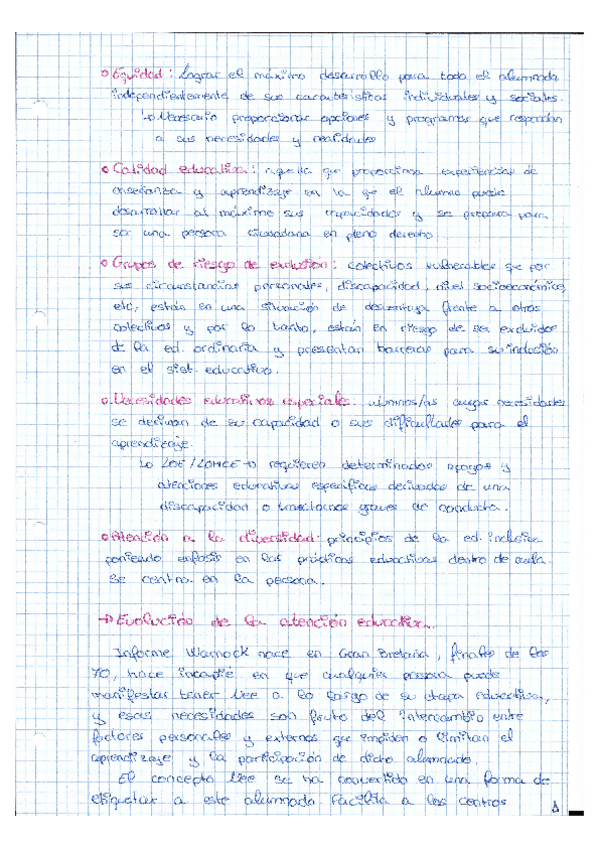 o Equidad: Lograr el máximo desarrollo para todo el alumnado
independientemente de sus características individuales y sociales.
↳ Necesario proporcionar opciones y programas que respondan
a sus necesidades y realidades
o Calidad educativa: aquella que proporciona experiencias de
enseñanza y aprendizaje en la que el alumno puede
desarrollar al máximo sus capacidades y se prepara para
ser una persona ciudadana en pleno derecho.
o Grupos de riesgo de exclusión: colectivos vulnerables que por
sus circunstancias personales, discapacidad, nivel socioeconómico,
etc, están en una situación de desventaja frente a otros
colectivos y por lo tanto, están en riesgo de ser excluidos
de la ed. ordinaria y presentan barreras para su inclusión
en el sist. educativo.
o Necesidades educativas especiales: alumnos/as cuyas necesidades
se derivan de su capacidad o sus dificultades para el
aprendizaje.
↳ LOE/LOMCE → requieren determinados apoyos y
atenciones educativas específicas derivadas de una
discapacidad o trastornos graves de conducta.
o Atención a la diversidad: principios de la ed. inclusiva
poniendo enfasis en las prácticas educativas dentro de aula.
Se centra en la persona.
→ Evolución de la atención educativa.
Informe Warnock nace en Gran Bretaña, finales de los
70, hace incapié en que cualquier persona puede
manifestar tener nee a lo largo de su etapa educativa,
y esas necesidades son fruto del intercambio entre
factores personales y externos que impiden o limitan el
aprendizaje y la participación de dicho alumnado.
El concepto nee se ha convertido en una forma de
etiquetar a este alumnado facilita a los centros